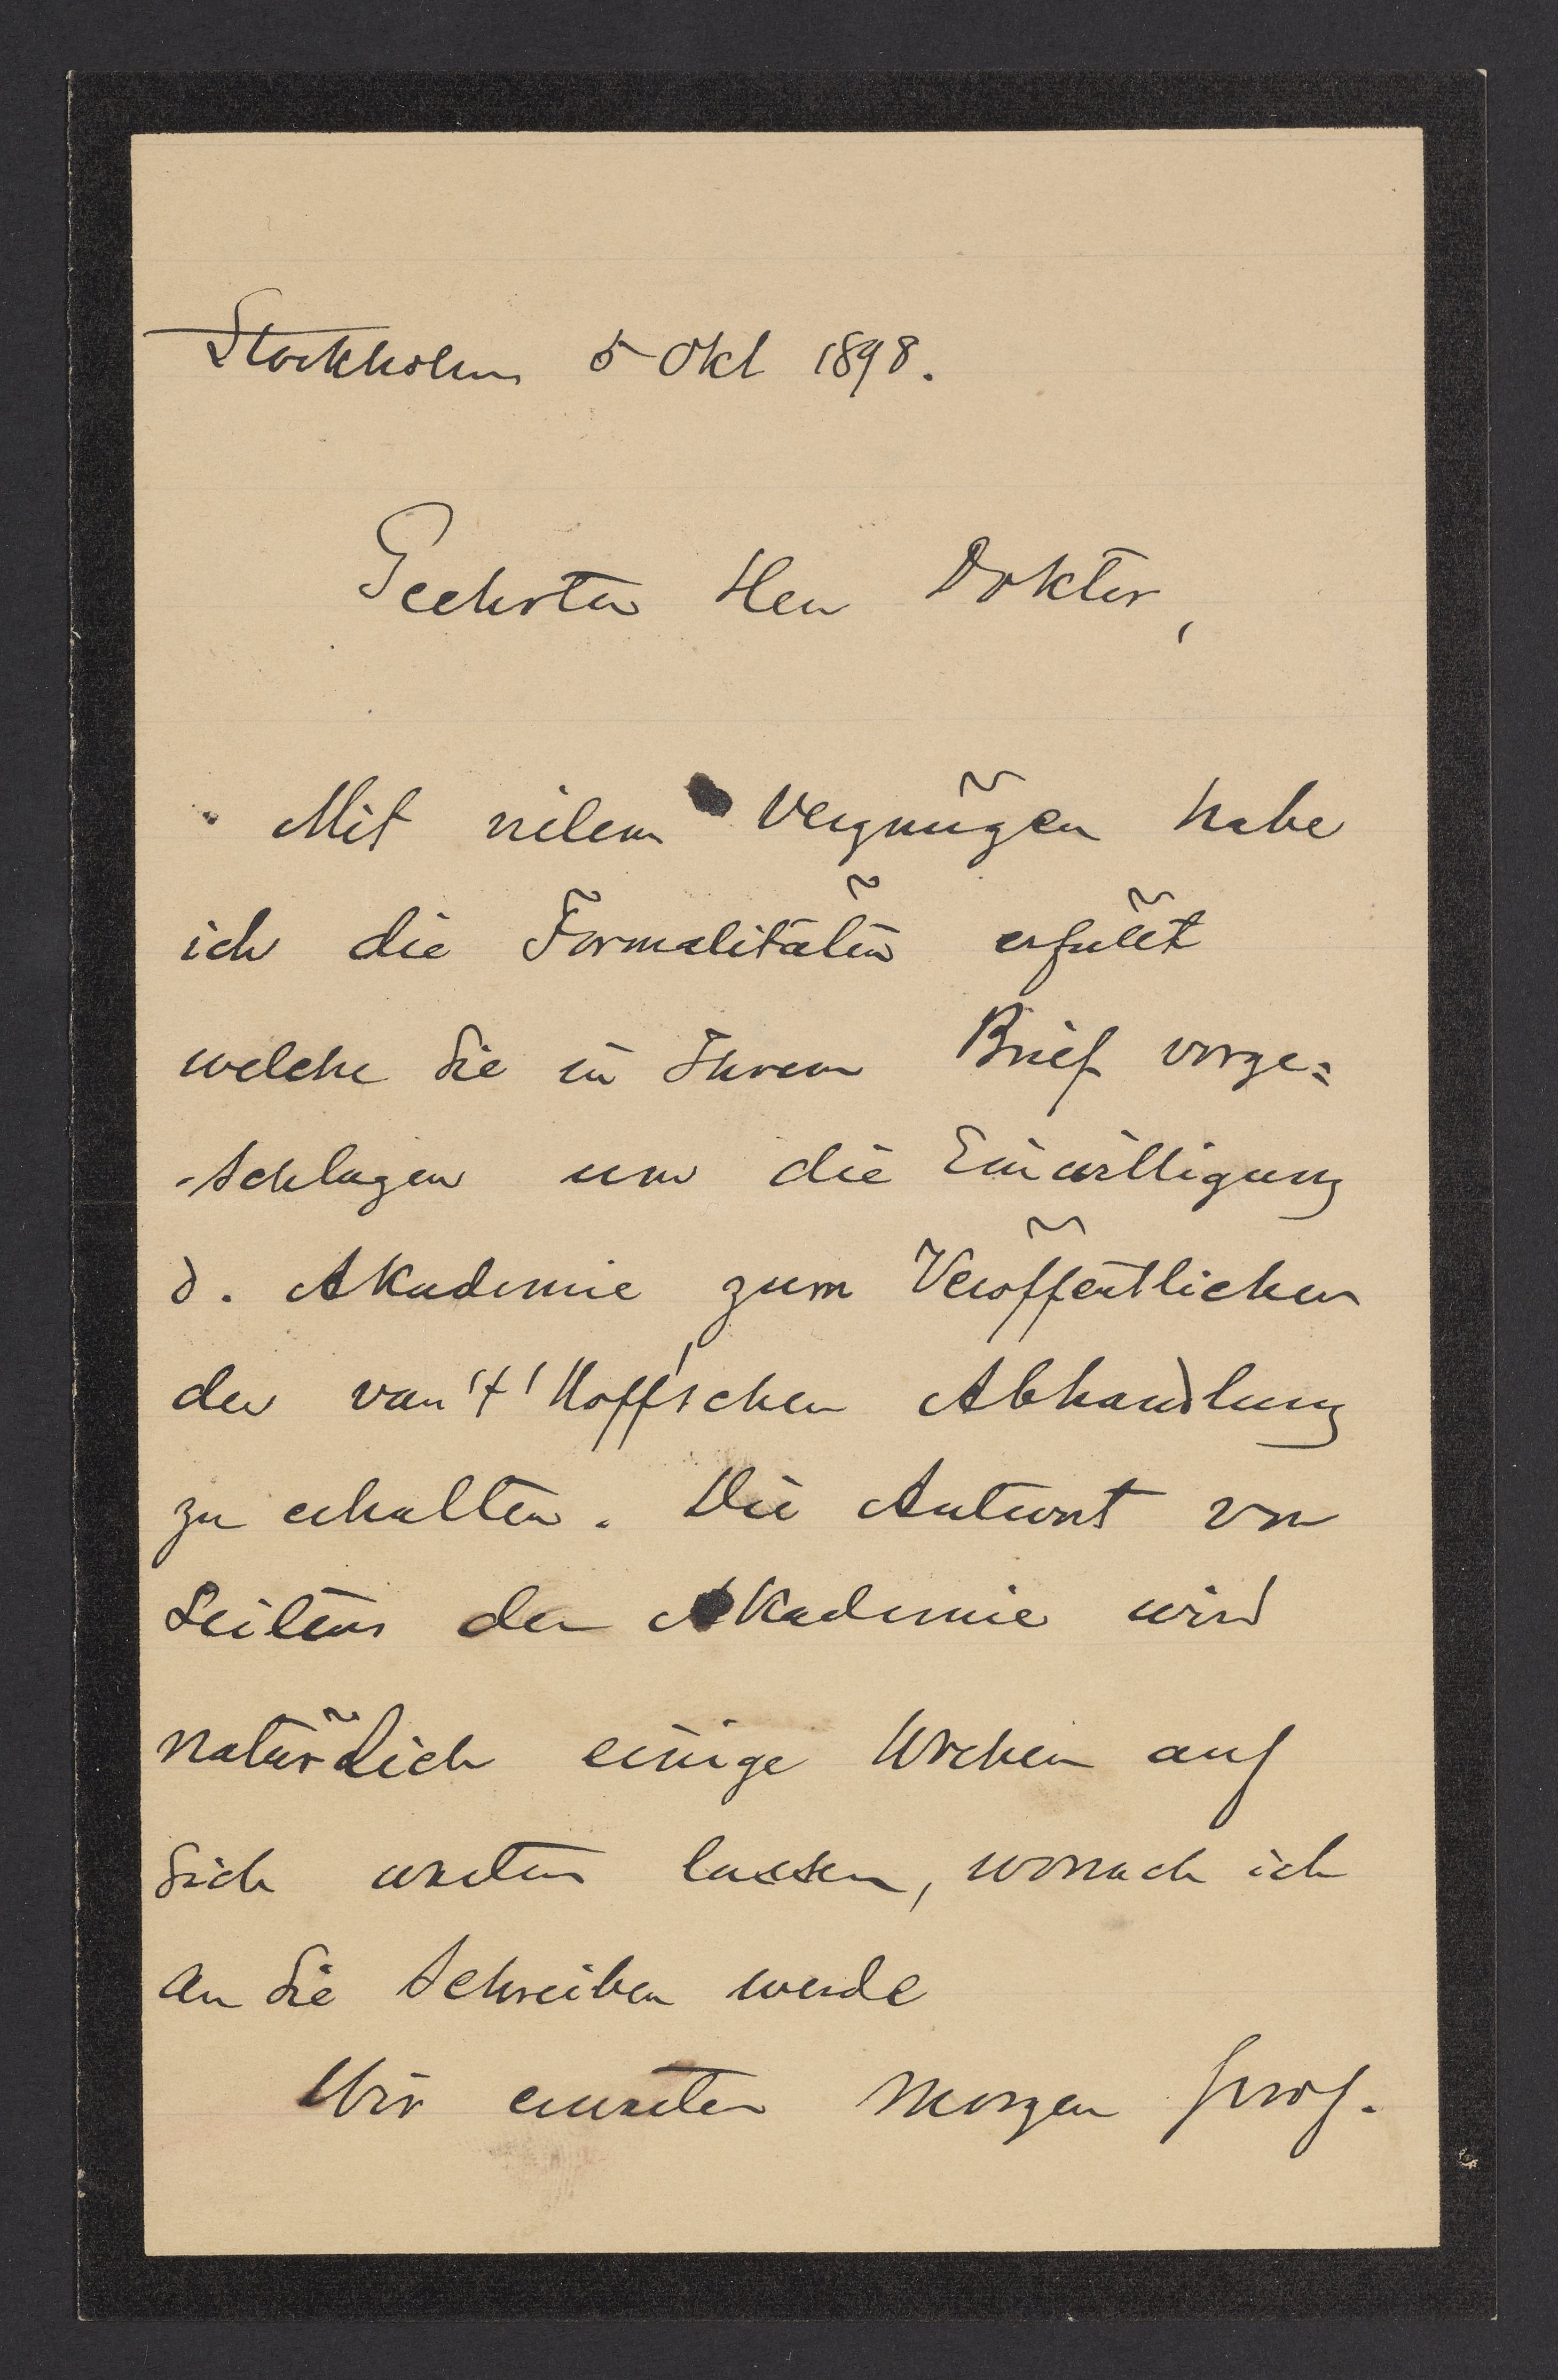 Stockholm 5 Okt 1898.
Geehrter Herr Doktor,
Mit vilem Vergnügen habe
ich die Formalitäten erfüllt
welche Sie in Ihrem Brief vorge=
-schlagen um die Einwilligung
d. Akademie zum Veröffentlichen
der van't' Hoff'schen Abhandlung
zu erhalten. Die Antwort von
Seitens der Akademie wird
natürlich einige Wochen auf
sich warten lassen, wonach ich
an Sie schreiben werde
Wir erwarten morgen Prof.